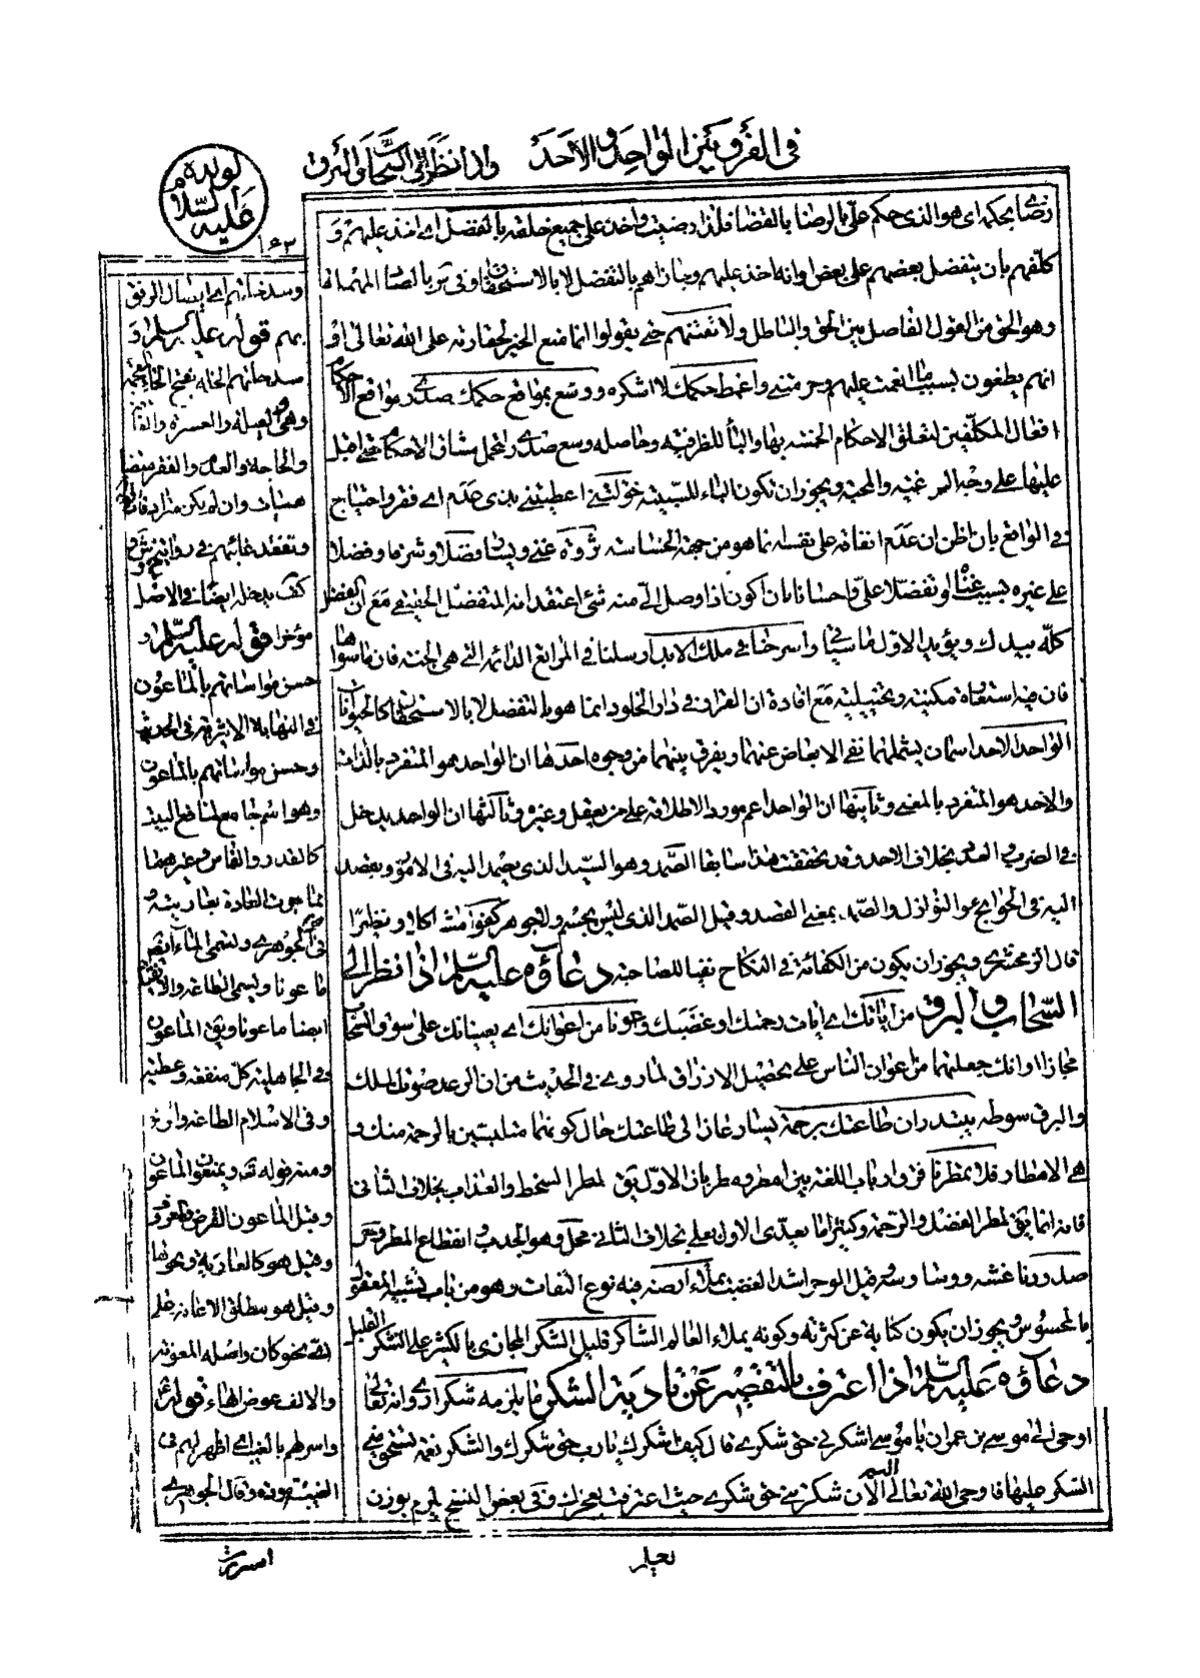 في الفرق بين الواحد والاحد
واذا نظر الى السحاب والبرق
لولده عليه السلام
١٦٢
رضى بحكمه اي هو الذي حكم على بالرضا بالقضا فلذا رضيت واخذ على جميع خلقه بالتفضل اي اخذ عليهم و
كلفهم بان يتفضل بعضهم على بعض او انه اخذ عليهم وجازاهم بالتفضل لا بالاستحقاق وفي س بالصاد المهملة
وهو الحق من القول الفاصل بين الحق والباطل ولا تفتنهم حتى يقولوا انما منع الخير لحقارته على الله تعالى او
انهم يطغون بسبب ما انعمت عليهم وحرمتني واغمط حكمك لا اشكره ووسع بمواقع حكمك صدري مواقع الاحكام
افعال المكلفين لتعلق الاحكام الخمسة بها والباء للظرفية وحاصله وسع صدري لتحمل مشاق الاحكام حتى اقبل
عليها على وجه الرغبة والمحبة ويجوز ان تكون الباء للسببية خولتني اعطيتني بذي عدم اي فقر واحتياج
في الواقع بان اظن ان عدم انفاقه على نفسه انما هو من جهة الخساسة ثروة غنى ويسار فضلا وشرفا وفضلا
على غيره بسبب غناه او تفضلا على واحسانا بان اكون اذا وصل الي منه شئ اعتقد انه المتفضل الحقيقي مع ان الفضل
كله بيدك ويؤيد الاول ما سياتي واسرحنا في ملك الابد ارسلنا في المراتع الدائمة التي هي الجنة فان ما سواها
فان فيه استعارة مكنية وتخييلية مع افادة ان القرار في دار الخلود انما هو بالتفضل لا بالاستحقاق كالحيوانات
الواحد الاحد اسمان يشملهما نفي الابعاض عنهما ويفرق بينهما من وجوه احدها ان الواحد هو المتفرد بالذات
والاحد هو المتفرد بالمعنى وثانيها ان الواحد اعم مورد الاطلاقه على من يعقل وغيره وثالثها ان الواحد يدخل
في الضرب والعدد بخلاف الاحد وقد تحققت هذا سابقا الصمد وهو السيد الذي يصمد اليه في الامور ويقصد
اليه في الحوائج والنوازل والصمد بمعنى القصد وقيل الصمد الذي ليس بجسم ولا جوهر كفوا مشاكلا ونظيرا
قال الزمخشري ويجوز ان يكون من الكفائة في النكاح نفيا للصاحبة دعاؤه عليه السلام اذا نظر الى
السحاب والبرق من اياتك اي ايات رحمتك او غضبك وعونا من اعوانك اي يعينانك على سوق السحاب
مجازا او انك جعلتهما من اعوان الناس على تحصيل الارزاق لما روي في الحديث من ان الرعد صوت الملك
والبرق سوطه يبتدران طاعتك برحمة يسارعان الى طاعتك حال كونهما متلبسين بالرحمة منك و
هي الامطار فلا تمطرنا فرق ارباب اللغة بين امطر ومطر بان الاول يق لمطر السخط والعذاب بخلاف الثاني
فانه انما يق لمطر الفضل والرحمة وكثيرا ما يعدى الاول بعلى بخلاف الثاني محل وهو الجدب وانقطاع المطر وحر
صدورنا غشه ووساوسه وقيل الوحر اشد الغضب يملاء ارضه فيه نوع التفات وهو من باب تشبيه المعقول
بالمحسوس ويجوز ان يكون كناية عن كثرته وكونه يملاء العالم الشاكر قليل الشكر المجازي بالكثير على الشكر القليل
دعاؤه عليه السلام اذا اعترف بالتقصير عن تادية الشكر ما يلزمه شكرا روي انه تعالى
اوحى الى موسى بن عمران يا موسى اشكرني حق شكري قال كيف اشكرك يا رب حق شكرك والشكر نعمة تستحق مني
الشكر عليها فاوحى الله تعالى اليه الان شكرتني حق شكري حيث اعترفت بعجزك وفي بعض النسخ يلزم بوزن
يعلم
وسد خلتهم اي ايصال الرفق
بهم قوله عليه السلام و
سد خلتهم الخلة بفتح الخاء المعجمة
وهي العيلة والعسرة والفاقة
والحاجة والعدم والفقر
وتفقد غائبهم في رواية
كف بدخله ايضا في الاصل
مؤخرا قوله عليه السلام و
حسن مواساتهم بالماعون
في النهاية الاثيرية في الحديث
وحسن مواساتهم بالماعون
وهو اسم جامع لمنافع البيت
كالقدر والفاس وغيرهما
مما جرت العادة بعاريته
الجوهري ويسمى الماء ايضا
ماعونا ويسمى الطاعة والانقياد
ايضا ماعونا ويق الماعون
في الجاهلية كل منفعة وعطية
وفي الاسلام الطاعة والزكوة
ومنه قوله تعه ويمنعون الماعون
وقيل الماعون القرض والمعروف
وقيل هو كالعارية ونحوها
وقيل هو مطلق الاعانة على
اي نحو كان واصله المعونة
والالف عوض الهاء قوله
واسر لهم بالغيب اي اظهر لهم في
الغيبة مودة وقال الجوهري
اسررت